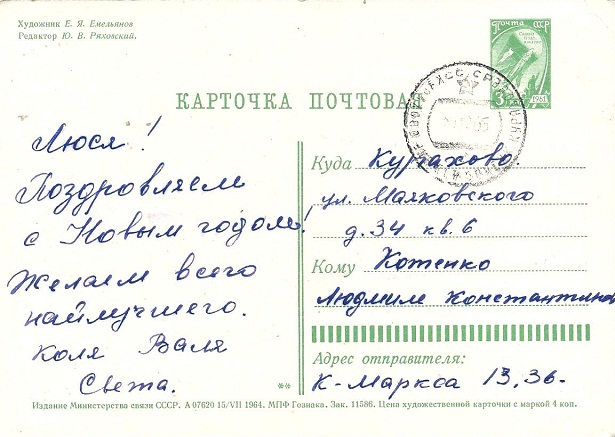 Художник Е. Я. Емельянов
Редактор Ю. В. Ряховский.
ПОЧТА СССР
3 К
1961
КАРТОЧКА ПОЧТОВАЯ
Люся!
Поздровляем
с Новым годом!
Желаем всего
найлучшего.
Коля Валя
Света.
**
Куда Курахово
ул. Маяковского
д. 34 кв. 6
Кому Котенко
Людмиле Константинов
Адрес отправителя:
К-Маркса 13, 36.
Издание Министерства связи СССР. А 07620 15/VII 1964. МПФ Гознака. Зак. 11586. Цена художественной карточки с маркой 4 коп.